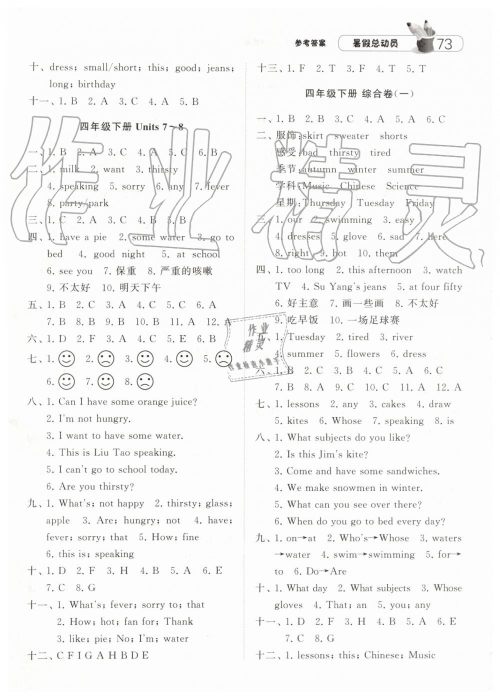 参考答案 暑假总动员 73
十、dress; small/short; this; good; jeans;
long; birthday
十一、1. B 2. A 3. C 4. A 5. B
四年级下册 Units 7~8
一、1. B 2. A 3. C 4. A 5. C 6. B
二、1. milk 2. want 3. thirsty
4. speaking 5. sorry 6. any 7. fever
8. party park
三、1. C 2. A 3. C 4. B 5. B
四、1. have a pie 2. some water 3. go to
bed 4. good night 5. at school
6. see you 7. 保重 8. 严重的咳嗽
9. 不太好 10. 明天下午
五、1. B 2. C 3. A 4. A 5. C 6. A
7. B 8. B 9. B 10. C 11. A 12. A
六、1. D 2. F 3. A 4. C 5. E 6. B
七、1. 2. 3. 4. 5.
6. 7. 8.
八、1. Can I have some orange juice?
2. I'm not hungry.
3. I want to have some water.
4. This is Liu Tao speaking.
5. I can't go to school today.
6. Are you thirsty?
九、1. What's; not happy 2. thirsty; glass;
apple 3. Are; hungry; not 4. have;
fever; sorry; that 5. How; fine
6. this is; speaking
十、1. D 2. F 3. H 4. B 5. A 6. E
7. C 8. G
十一、1. What's; fever; sorry to; that
2. How; hot; fan for; Thank
3. like; pie; No; I'm; water
十二、C F I G A H B D E
十三、1. F 2. T 3. F 4. T 5. T
四年级下册 综合卷(一)
一、1. B 2. B 3. C 4. A 5. A 6. C
二、服饰:skirt sweater shorts
感受:bad thirsty tired
季节:autumn winter summer
学科:Music Chinese Science
星期:Thursday Tuesday Friday
三、1. our 2. swimming 3. easy
4. dresses 5. glove 6. sad 7. Here
8. right 9. hot 10. them
四、1. too long 2. this afternoon 3. watch
TV 4. Su Yang's jeans 5. at four fifty
6. 好主意 7. 画一些画 8. 不太好
9. 吃早饭 10. 一场足球赛
五、1. Tuesday 2. tired 3. river
4. summer 5. flowers 6. dress
六、1. B 2. C 3. B 4. C 5. B 6. C
7. B 8. A 9. C 10. C 11. A 12. A
七、1. lessons 2. any 3. cakes 4. draw
5. kites 6. Whose 7. speaking 8. is
八、1. What subjects do you like?
2. Is this Jim's kite?
3. Come and have some sandwiches.
4. We make snowmen in winter.
5. What can you see over there?
6. When do you go to bed every day?
九、1. on→at 2. Who's→Whose 3. waters
→water 4. swim→swimming 5. for→
to 6. Do→Are
十、1. What day 2. What subjects 3. Whose
gloves 4. That; an 5. you; any
十一、1. D 2. F 3. H 4. B 5. A 6. E
7. C 8. G
十二、1. lessons; this; Chinese; Music